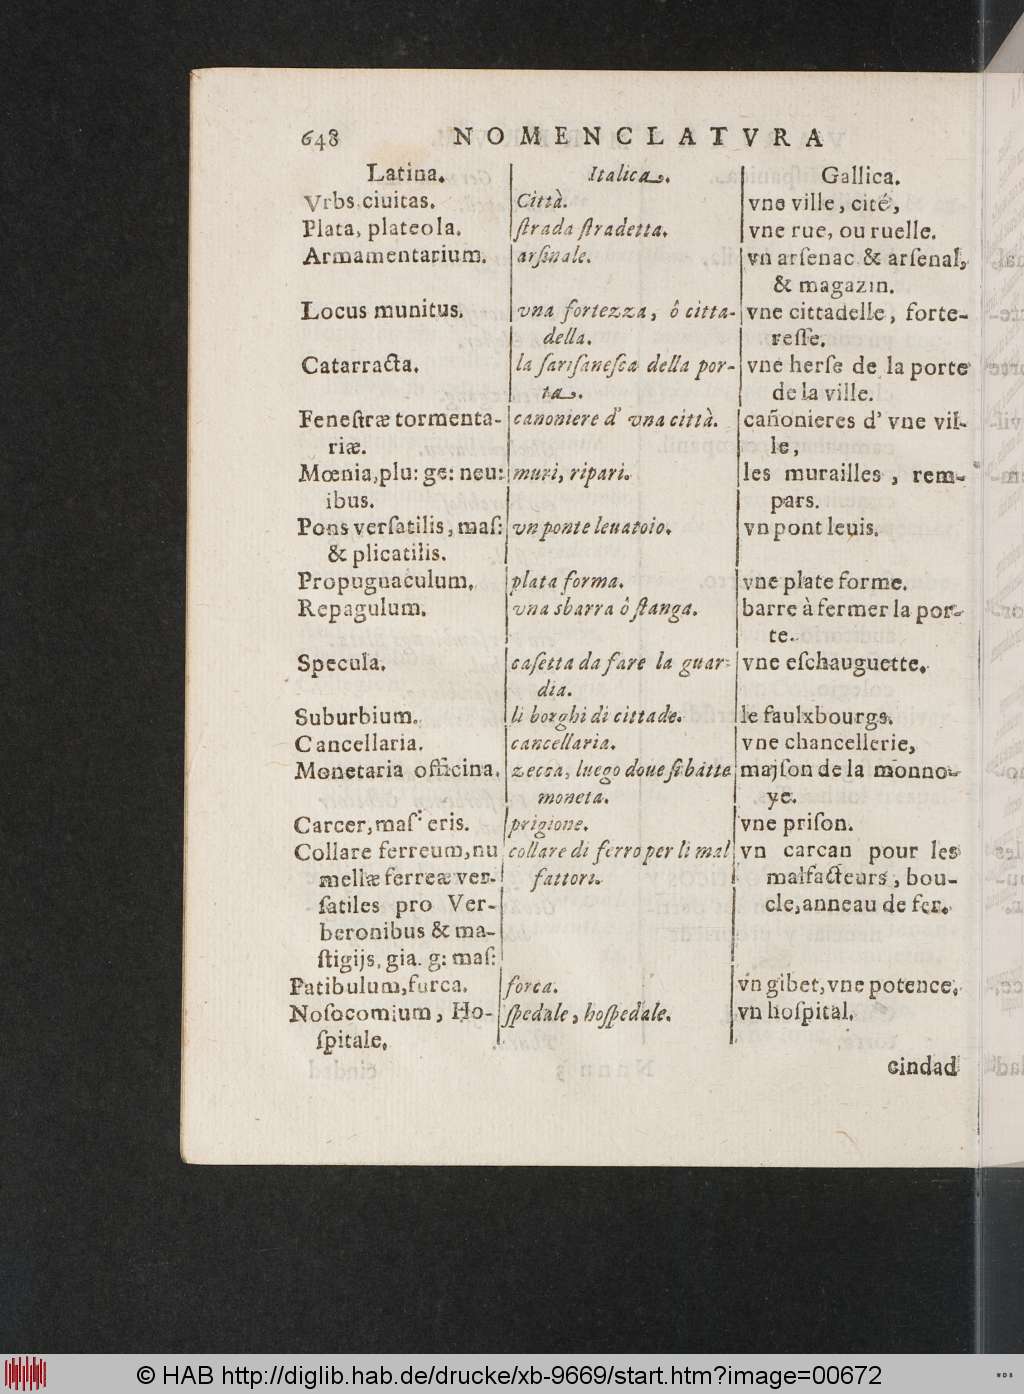 648 NOMENCLATVRA
Latina. Italica. Gallica.
Vrbs ciuitas. Città. vne ville, cité,
Plata, plateola. ſtrada ſtradetta. vne rue, ou ruelle.
Armamentarium. arſinale. vn arſenac & arſenal,
& magazin.
Locus munitus. vna fortezza, ô citta- vne cittadelle, forte-
della. reſſe.
Catarracta. la ſariſaneſca della por- vne herſe de la porte
ta. de la ville.
Feneſtræ tormenta- canoniere d' vna città. cañonieres d' vne vil-
riæ. le,
Mœnia, plu: ge: neu: muri, ripari. les murailles, rem-
ibus. pars.
Pons verſatilis, maſ: vn ponte leuatoio. vn pont leuis.
& plicatilis.
Propugnaculum. plata forma. vne plate forme.
Repagulum. vna sbarra ô ſtanga. barre à fermer la por-
te.
Specula. caſetta da fare la guar- vne eſchauguette.
dia.
Suburbium. li borghi di cittade. le faulxbourgs.
Cancellaria. cancellaria. vne chancellerie,
Monetaria officina. zecca, luego doue ſi batte majſon de la monno-
moneta. ye.
Carcer, maſ: eris. prigione. vne priſon.
Collare ferreum, nu collare di ferro per li mal vn carcan pour les
mellæ ferreæ ver- fattori. malfacteurs, bou-
ſatiles pro Ver- cle, anneau de fer.
beronibus & ma-
ſtigijs, gia. g: maſ:
Patibulum, furca. forca. vn gibet, vne potence,
Noſocomium, Ho- ſpedale, hoſpedale. vn hoſpital,
ſpitale.
cindad
© HAB http://diglib.hab.de/drucke/xb-9669/start.htm?image=00672